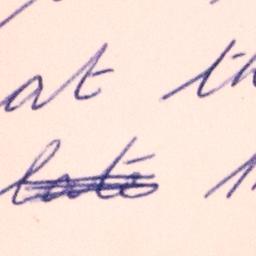 at th
late